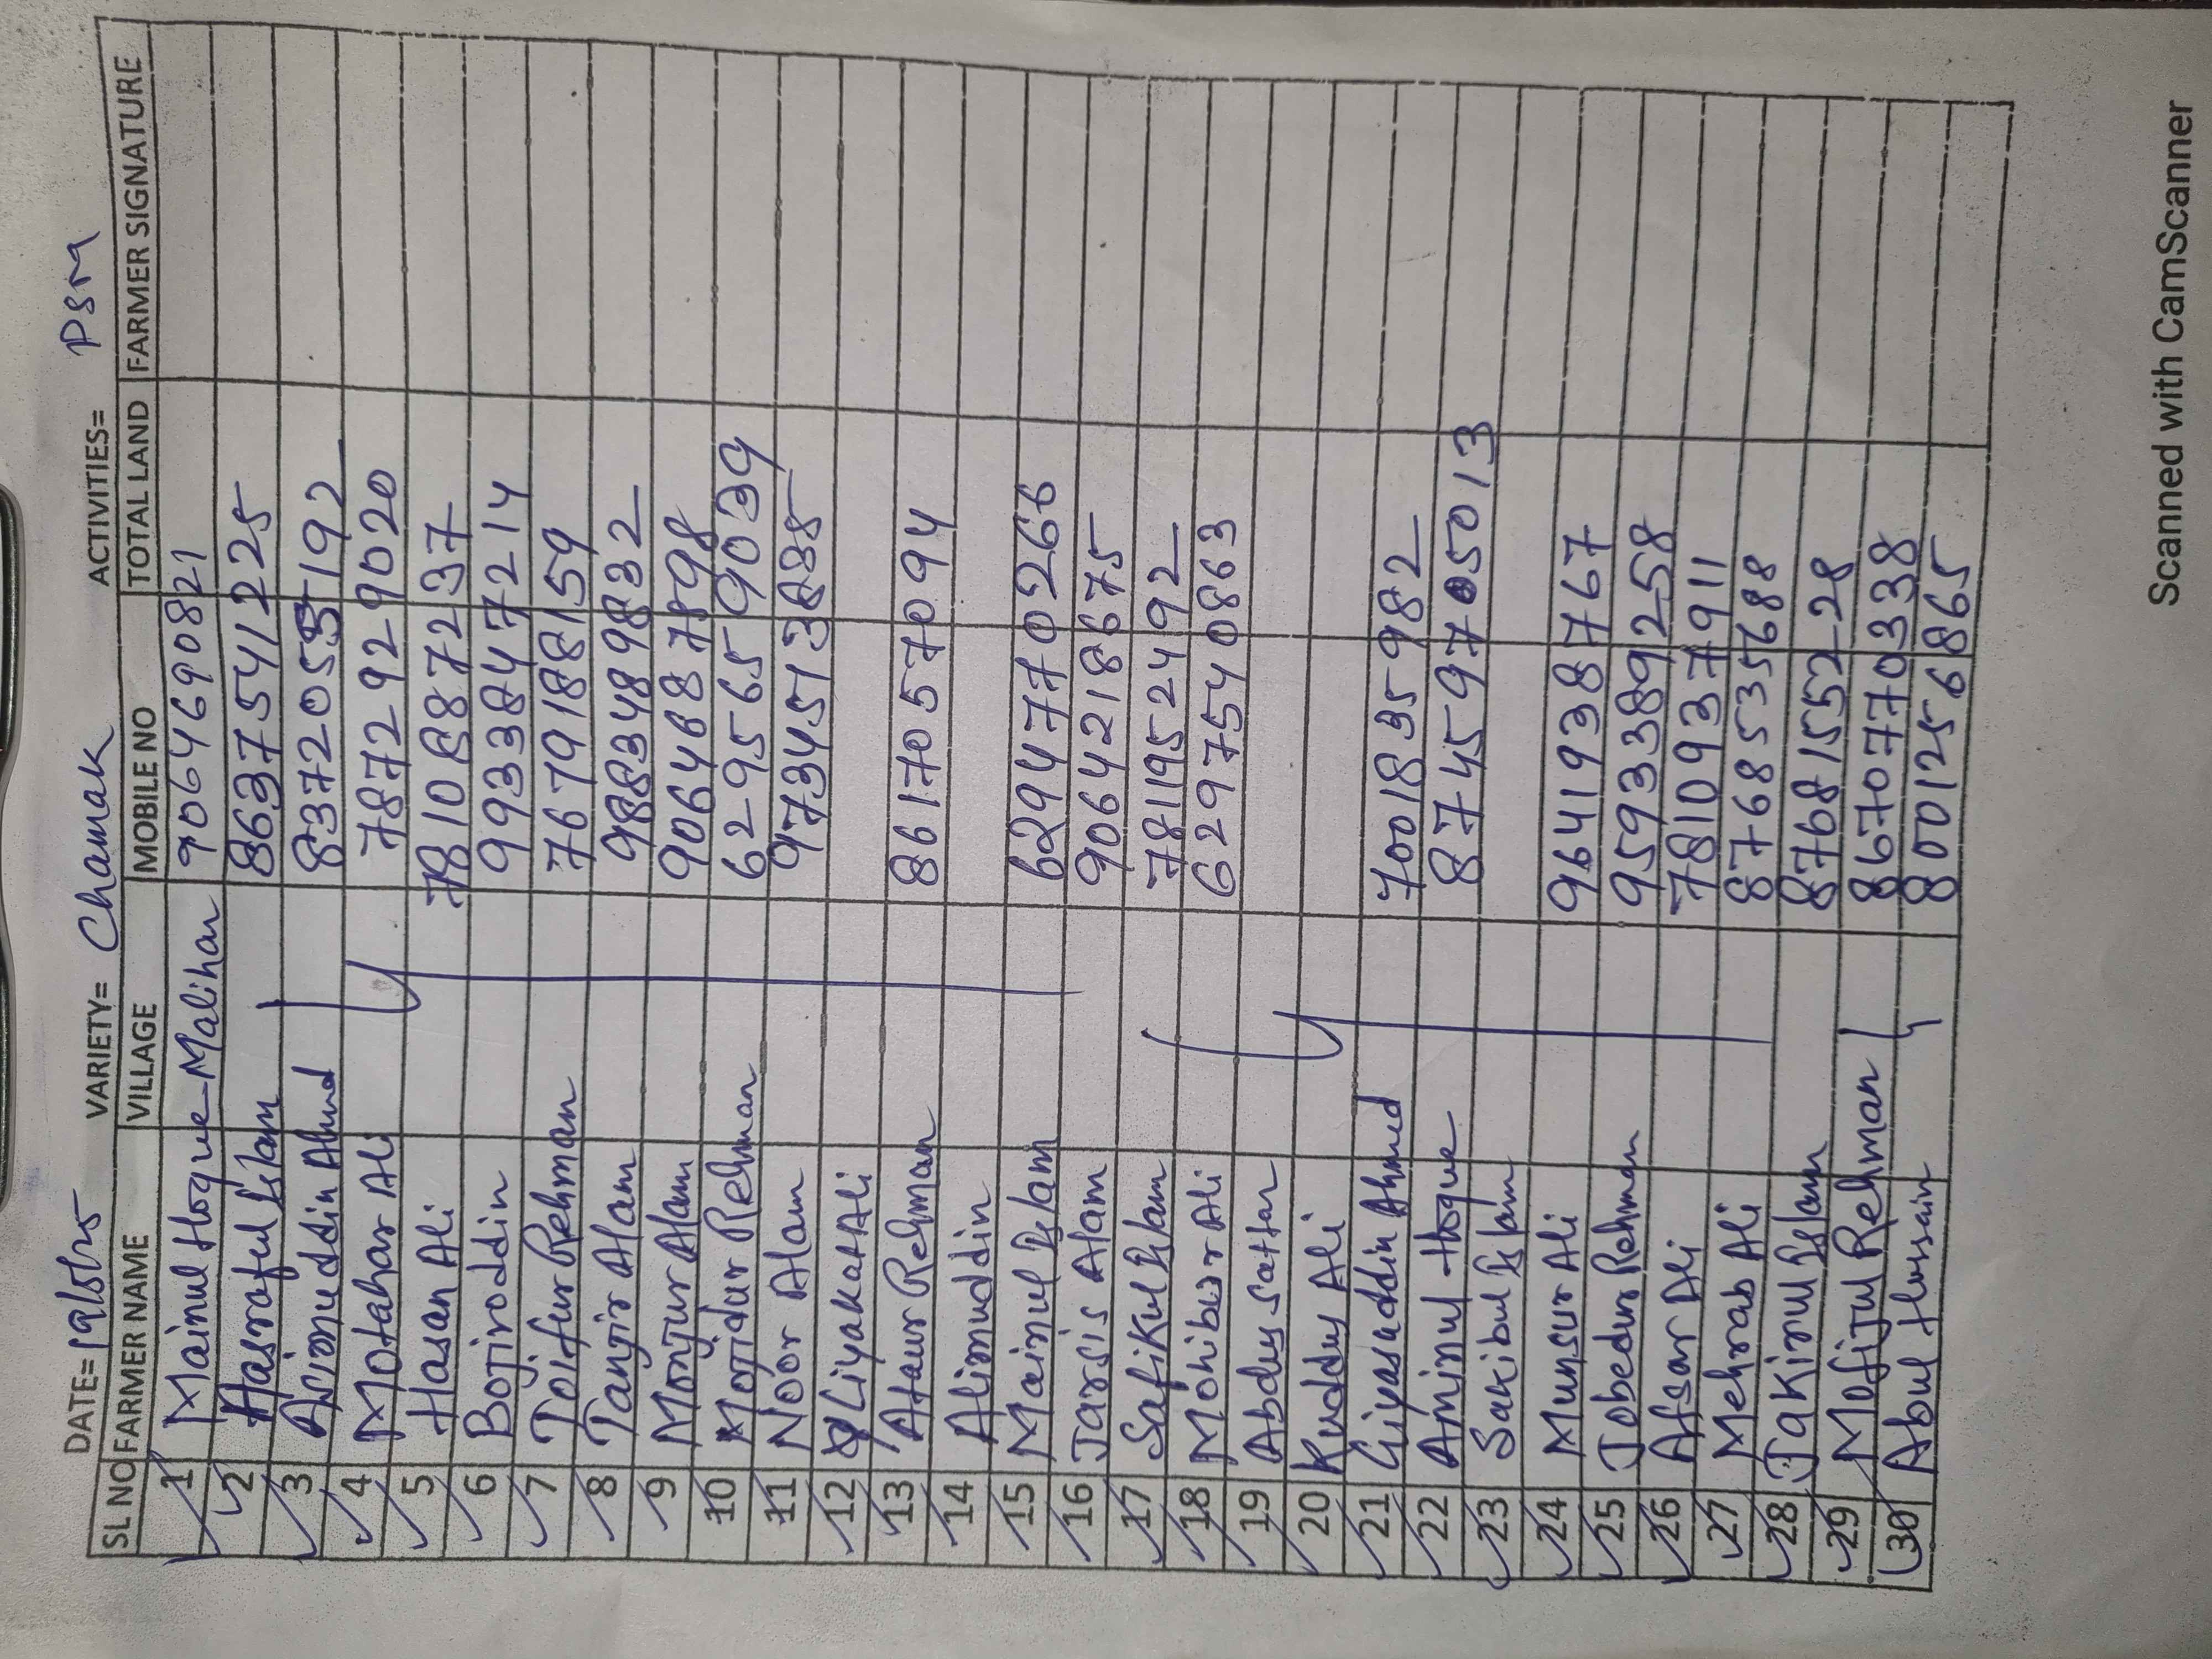 DATE= 19/5/25 VARIETY= Chamak ACTIVITIES= PSM
SL NO FARMER NAME VILLAGE MOBILE NO TOTAL LAND FARMER SIGNATURE
1 Mainul Hoque Malihar 9064690821
2 Hasraful Islam 8637541225
3 Asimuddin Ahmd 8372055192
4 Motahar Ali 7872929020
5 Hasan Ali 7810887237
6 Bojiroddin 9933847214
7 Tolfur Rehman 7679188159
8 Tanjir Alam 9883489832
9 Monjur Alam 9064687898
10 Mojidur Rehman 6295659039
11 Noor Alam 973451
12 Liyakat Ali
13 Ataur Rehman 8617057094
14 Alimuddin
15 Mainul Islam 6294770266
16 Jarsis Alam 9064218675
17 Safikul Islam 7811952492
18 Mohibur Ali 6297540863
19 Abdus Sattar
20 Kuddus Ali
21 Giyasuddin Ahmed 7001835982
22 Aminul Hoque 87459705013
23 Sakibul Islam
24 Munsur Ali 9641938767
25 Jobedur Rehman 9593389258
26 Afsar Ali 7810937911
27 Mehrab Ali 8768535688
28 Jakirul Islam 8768155228
29 Mofijul Rehman 8670770338
30 Abul Hussain 8001256865
Scanned with CamScanner